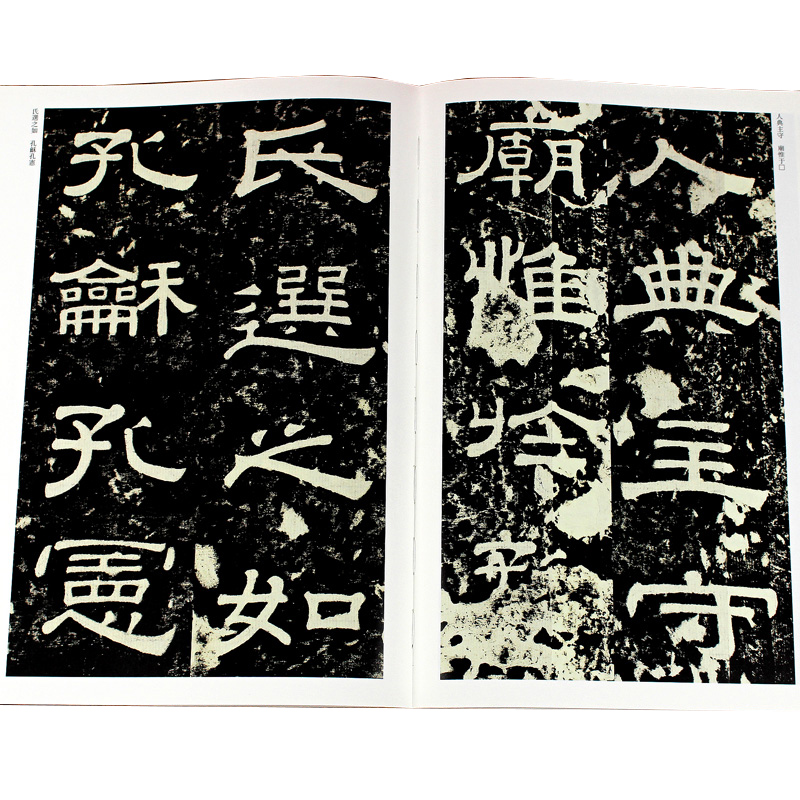 人典主守
廟惟
氏選之如
孔龢孔憲
人典主守 廟惟下□
氏選之如 孔龢孔憲